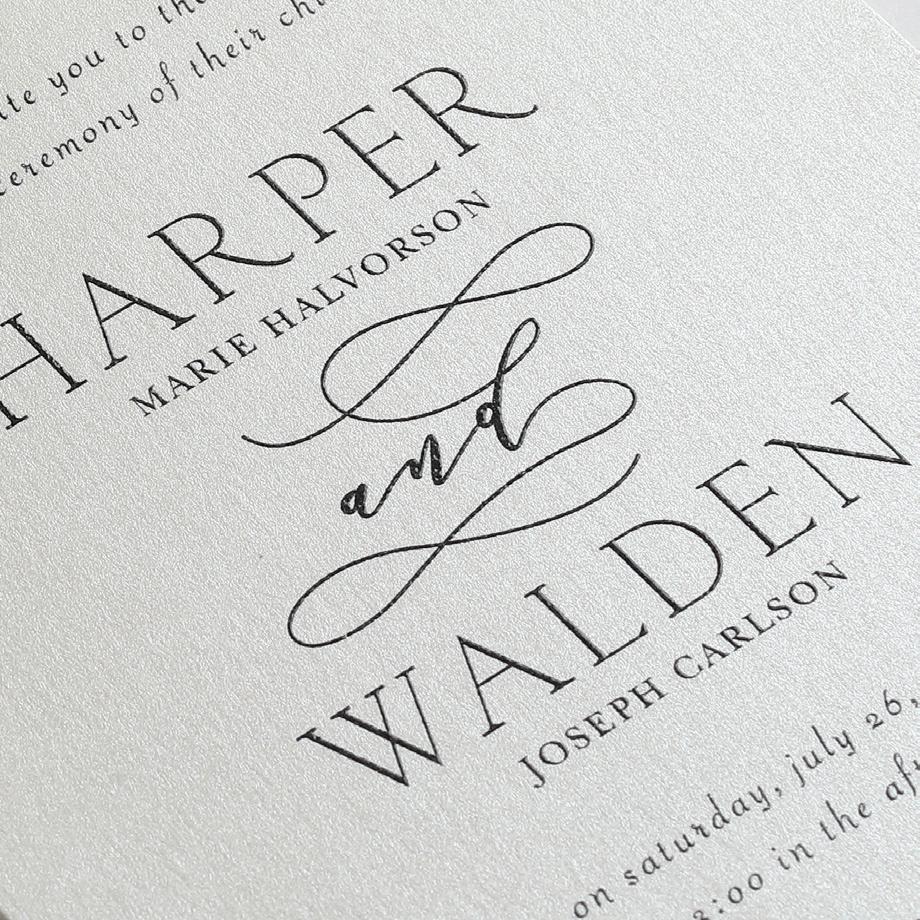 you to the
ceremony of their
HARPER
MARIE HALVORSON
and
WALDEN
JOSEPH CARLSON
on saturday, july 26,
:00 in the